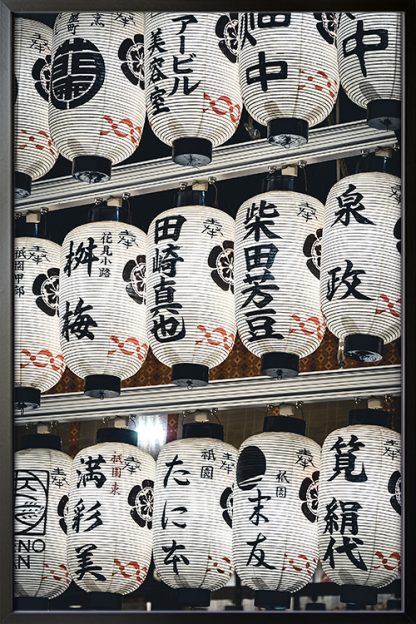 奉
アービル
美容室
畑中
奉
中
奉
祇園甲部
奉
花見小路
桝梅
奉
田崎真也
奉
柴田芳豆
奉
泉政
奉
NO
N
奉
祇園東
満彩美
奉
祇園
たに本
奉
祇園
末友
奉
筧絹代